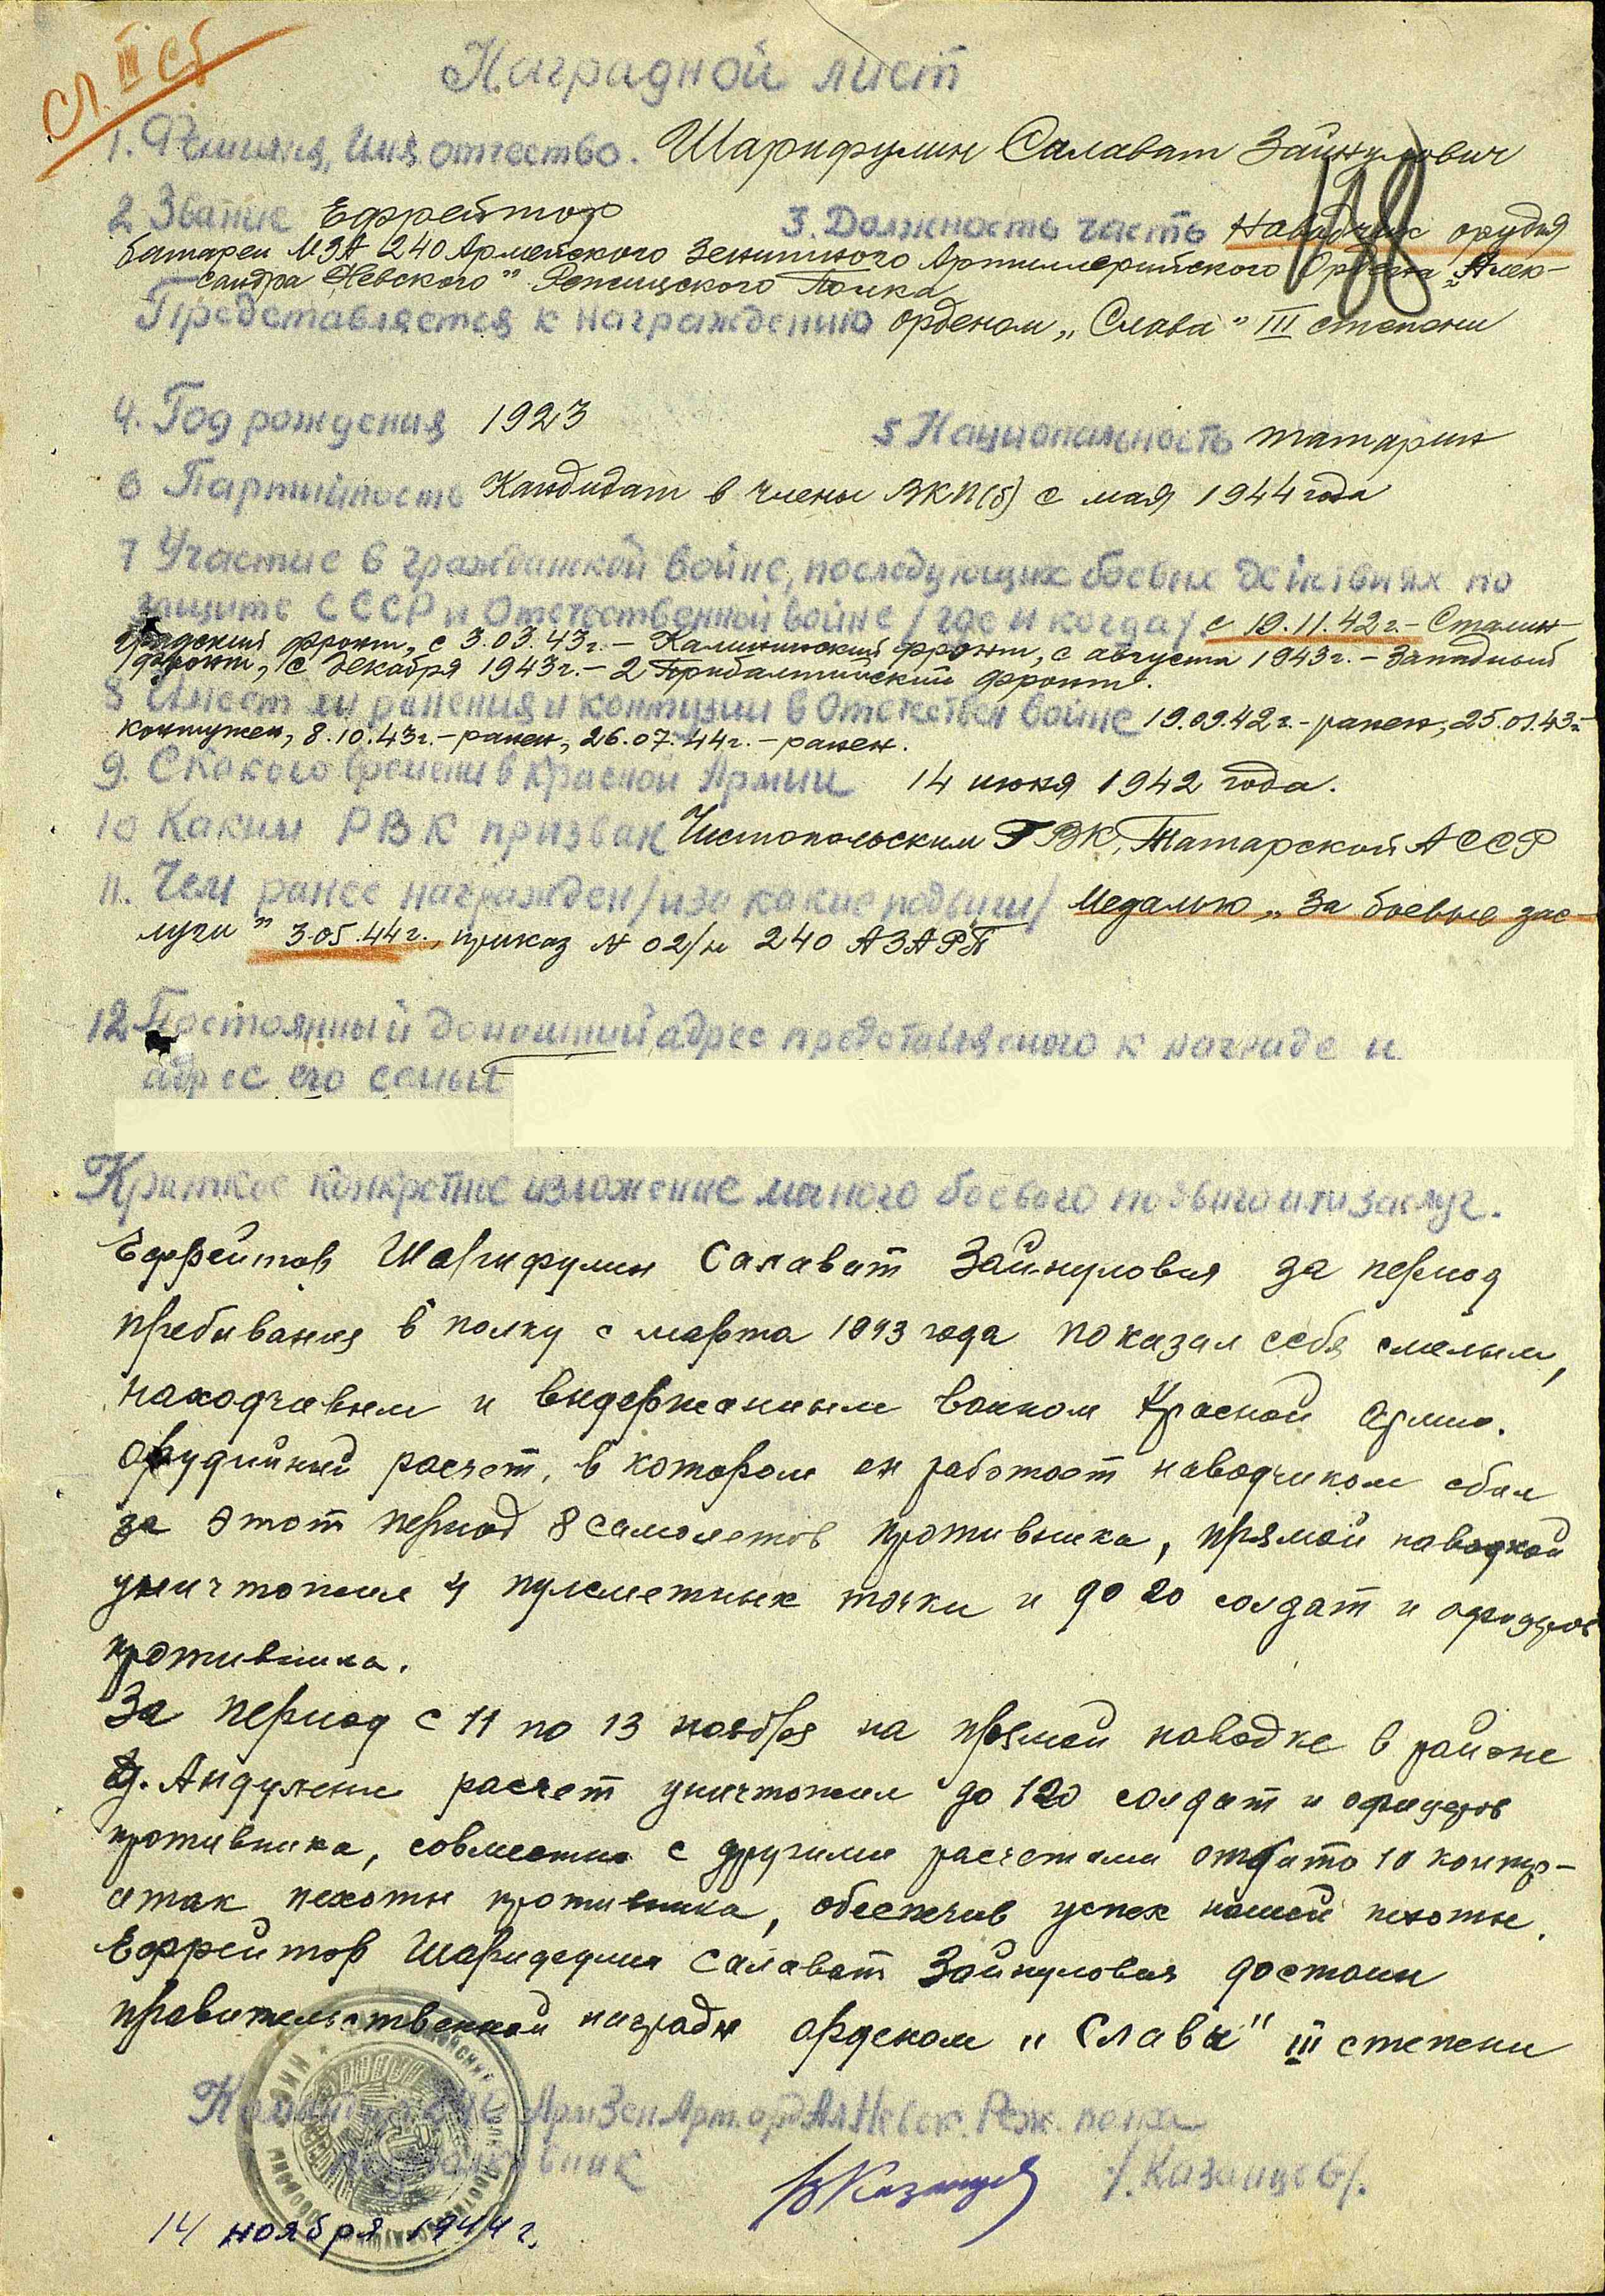 Сл. III ст
Наградной лист
1. Фамилия, Имя, отчество. Шарифулин Салават Зайнулович
2 Звание Ефрейтор 3. Должность часть Наводчик орудия
батареи МЗА 240 Армейского Зенитного Артиллерийского Ордена „Алек-
сандра Невского" Режицского Полка
Представляется к награждению орденом „Слава" III степени
4. Год рождения 1923 5 Национальность татарин
6 Партийность Кандидат в члены ВКП(б) с мая 1944 года
7 Участие в гражданской войне, последующих боевых действиях по
защите СССР и Отечественной войне /где и когда/ с 19.11.42 г. - Сталин-
градский фронт, с 3.03.43г. - Калининский фронт, с августа 1943г. - Западный
фронт, с декабря 1943г. - 2 Прибалтийский фронт.
8 Имеет ли ранения и контузии в Отечествен войне 19.09.42 г. - ранен, 25.01.43г-
контужен, 8.10.43г. - ранен, 26.07.44г. - ранен.
9. С какого времени в Красной Армии 14 июня 1942 года.
10 Каким РВК призван Чистопольским ГВК, Татарской АССР
11. Чем ранее награжден /и за какие подвиги/ Медалью „За боевые зас-
луги" 3.05.44 г., приказ № 02/н 240 АЗАРП
12 Постоянный домашний адрес представляемого к награде и
адрес его семьи
Краткое конкретное изложение личного боевого подвига или заслуг.
Ефрейтор Шарифулин Салават Зайнулович за период
пребывания в полку с марта 1943 года показал себя смелым,
находчивым и выдержанным воином Красной Армии.
Орудийный расчет, в котором он работает наводчиком сбил
за этот период 8 самолетов противника, прямой наводкой
уничтожил 4 пулеметных точки и до 20 солдат и офицеров
противника.
За период с 11 по 13 ноября на прямой наводке в районе
д. Андулени расчет уничтожил до 120 солдат и офицеров
противника, совместно с другими расчетами отбито 10 контр-
атак пехоты противника, обеспечив успех нашей пехоты.
Ефрейтор Салават Зайнулович достоин
правительственной награды орденом „Славы" III степени
Командир 240 Арм Зен Арт. орд Ал Невск. Реж. полка
Подполковник ВКазанцев /Казанцев/.
14 ноября 1944 г.